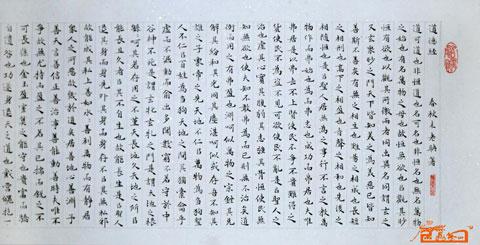 道德經 春秋 老聃著
道可道也非恒道也名可名也非恒名也無名萬物
之始也有名萬物之母也故恒無欲也以觀其妙
恒有欲也以觀其所徼兩者同出異名同謂玄之
又玄衆妙之門天下皆知美之為美惡已皆知
善斯不善矣有無之相生也難易之相成也長短
之相形也高下之相盈也音聲之相和也先後之
相隨恒也是以聖人居無為之事行不言之教萬
物作而弗始也為而弗恃也成功而弗居也夫唯
弗居是以弗去不上賢使民不爭不貴難得之貨
使民不為盜不見可欲使民不亂是以聖人之
治也虛其心實其腹弱其志強其骨恒使民無
知無欲也使夫知不敢弗為而已則無不治矣道
沖而用之有弗盈也淵呵似萬物之宗銼其兌
解其紛和其光同其塵湛呵似或存吾不知其
誰之子象帝之先天地不仁以萬物為芻狗聖
人不仁以百姓為芻狗天地之間其猶橐籥乎
虛而不淈動而愈出多聞數窮不若守於中
谷神不死是謂玄牝玄牝之門是謂天地之根
綿綿呵若存用之不勤天長地久天地之所以
能長且久者以其不自生也故能長生是以聖人
後其身而身先外其身而身存不以其無私邪
故能成其私上善如水水善利萬物而有靜居
衆之所惡故幾於道矣居善地心善淵予
善天言善信正善治事善能動善時夫唯不
爭故無尤持而盈之不若其已揣而銳之不
可長葆也金玉盈室莫之能守也貴富而驕
自遺咎也功遂身退天之道也載營魄抱一